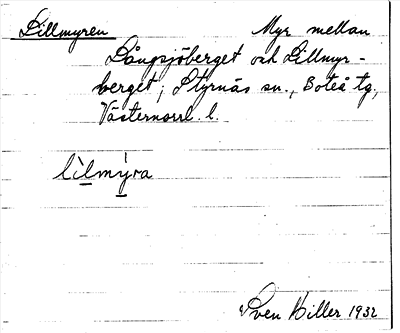 Lillmyren Myr mellan
Långsjöberget och Lillmyr-
berget; Styrnäs sn., Boteå tg,
Västernorrl. l.
lìlmýra
Sven Hiller 1932